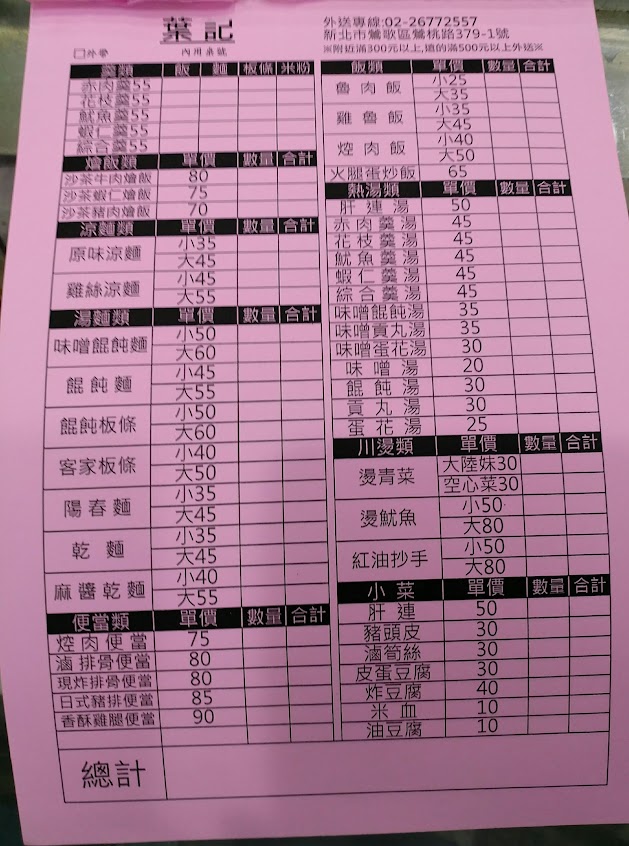 葉記
外送專線:02-26772557
新北市鶯歌區鶯桃路379-1號
□外帶 內用桌號
※附近滿300元以上,遠的滿500元以上外送※
羹類 飯 麵 板條 米粉
赤肉羹55
花枝羹55
魷魚羹55
蝦仁羹55
綜合羹55
燴飯類 單價 數量 合計
沙茶牛肉燴飯 80
沙茶蝦仁燴飯 75
沙茶豬肉燴飯 70
涼麵類 單價 數量 合計
原味涼麵 小35
大45
雞絲涼麵 小45
大55
湯麵類 單價 數量 合計
味噌餛飩麵 小50
大60
餛飩麵 小45
大55
餛飩板條 小50
大60
客家板條 小40
大50
陽春麵 小35
大45
乾麵 小35
大45
麻醬乾麵 小40
大55
便當類 單價 數量 合計
焢肉便當 75
滷排骨便當 80
現炸排骨便當 80
日式豬排便當 85
香酥雞腿便當 90
飯類 單價 數量 合計
魯肉飯 小25
大35
雞魯飯 小35
大45
焢肉飯 小40
大50
火腿蛋炒飯 65
熱湯類 單價 數量 合計
肝連湯 50
赤肉羹湯 45
花枝羹湯 45
魷魚羹湯 45
蝦仁羹湯 45
綜合羹湯 45
味噌餛飩湯 35
味噌貢丸湯 35
味噌蛋花湯 30
味噌湯 20
餛飩湯 30
貢丸湯 30
蛋花湯 25
川燙類 單價 數量 合計
燙青菜 大陸妹30
空心菜30
燙魷魚 小50
大80
紅油抄手 小50
大80
小菜 單價 數量 合計
肝連 50
豬頭皮 30
滷筍絲 30
皮蛋豆腐 30
炸豆腐 40
米血 10
油豆腐 10
總計